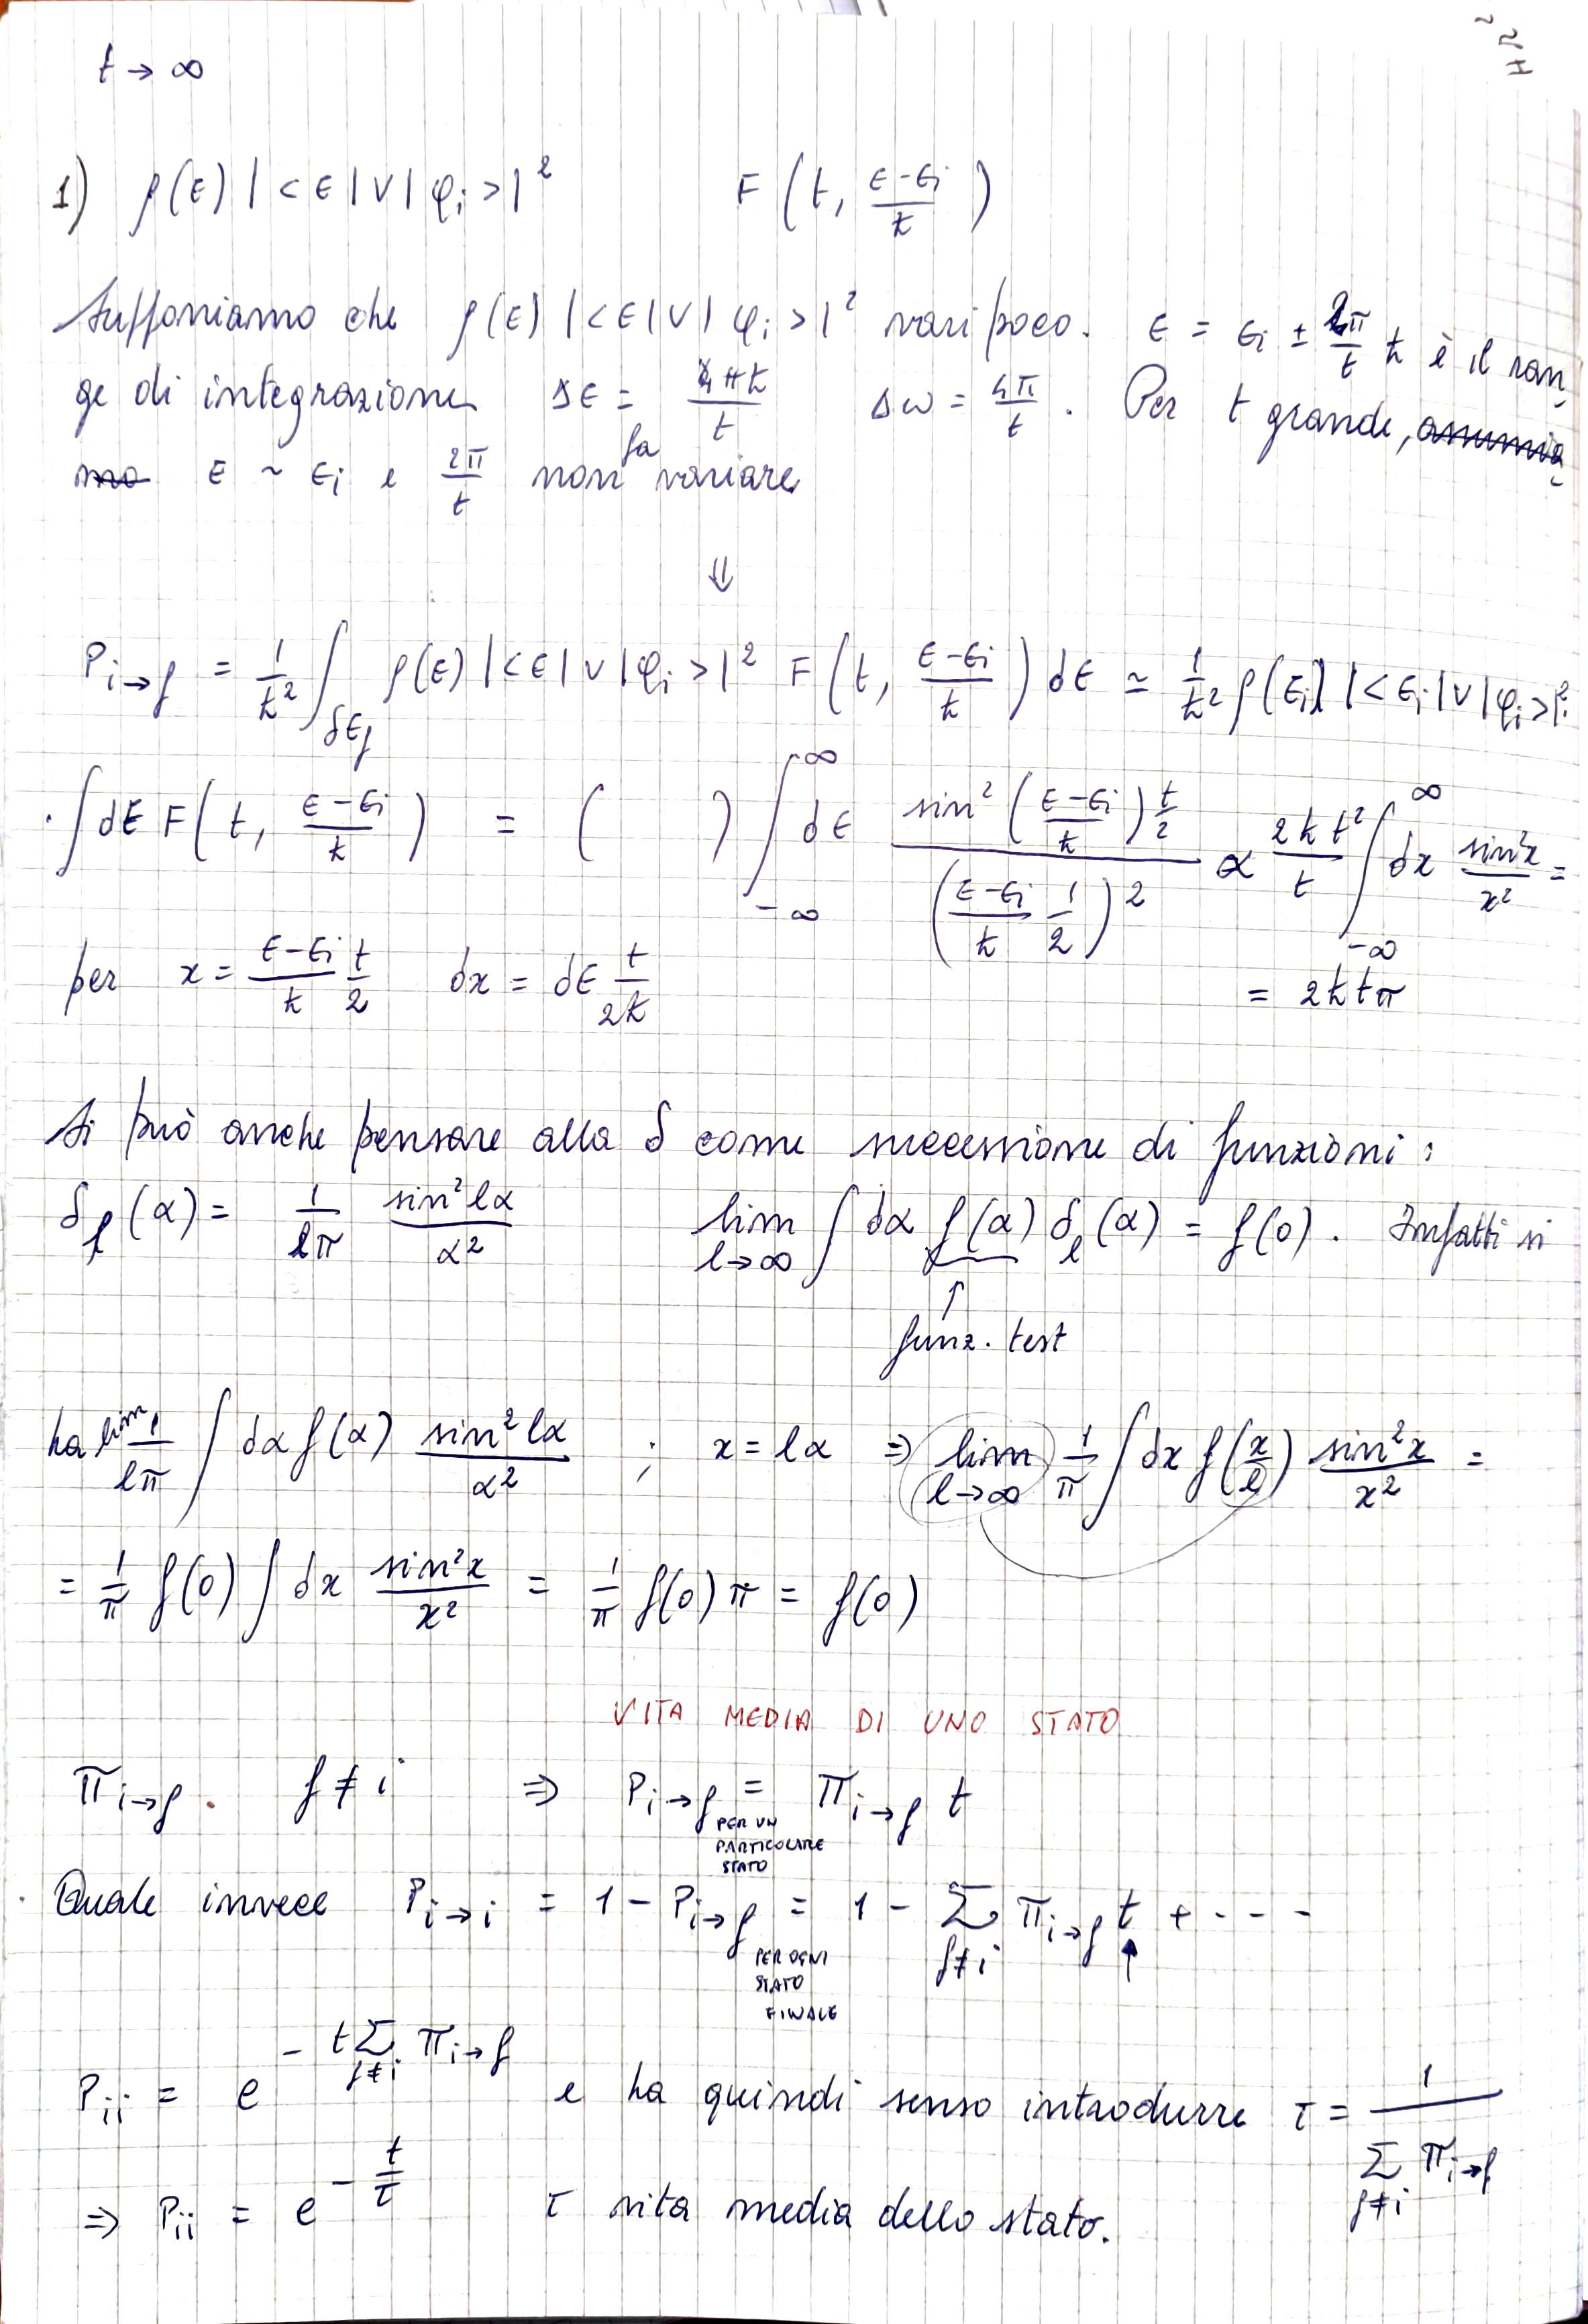 t → ∞
1) ρ(E) |<E|V|φᵢ>|² F(t, (E-Eᵢ)/ħ)
Supponiamo che ρ(E) |<E|V|φᵢ>|² vari poco. E = Eᵢ ± 2π/t ħ è il ran-
ge di integrazione ΔE = 4πħ/t Δω = 4π/t . Per t grande,
E ~ Eᵢ e 2π/t non fa variare
⇓
P_{i→f} = 1/ħ² ∫_{δE_f} ρ(E) |<E|V|φᵢ>|² F(t, (E-Eᵢ)/ħ) dE ≃ 1/ħ² ρ(Eᵢ) |<Eᵢ|V|φᵢ>|² ·
· ∫ dE F(t, (E-Eᵢ)/ħ) = ( ) ∫_{-∞}^{∞} dE sin²((E-Eᵢ)/ħ) t/2 / ((E-Eᵢ)/ħ 1/2)² ∝ 2ħt²/t ∫_{-∞}^{∞} dx sin²x/x² =
per x = (E-Eᵢ)/ħ t/2 dx = dE t/2ħ = 2ħtπ
Si può anche pensare alla δ come successione di funzioni:
δ_l(α) = 1/lπ sin²lα/α² lim_{l→∞} ∫ dα f(α) δ_l(α) = f(0). Infatti si
↑
funz. test
ha lim 1/lπ ∫ dα f(α) sin²lα/α² ; x = lα ⇒ lim_{l→∞} 1/π ∫ dx f(x/l) sin²x/x² =
= 1/π f(0) ∫ dx sin²x/x² = 1/π f(0) π = f(0)
VITA MEDIA DI UNO STATO
Π_{i→f} . f ≠ i ⇒ P_{i→f} = Π_{i→f} t
PER UN
PARTICOLARE
STATO
Quale invece P_{i→i} = 1 - P_{i→f} = 1 - Σ_{f≠i} Π_{i→f} t + - - -
PER OGNI
STATO
FINALE
P_{ii} = e^{-t Σ_{f≠i} Π_{i→f}} e ha quindi senso introdurre τ = 1/Σ_{f≠i} Π_{i→f}
⇒ P_{ii} = e^{-t/τ} τ vita media dello stato.